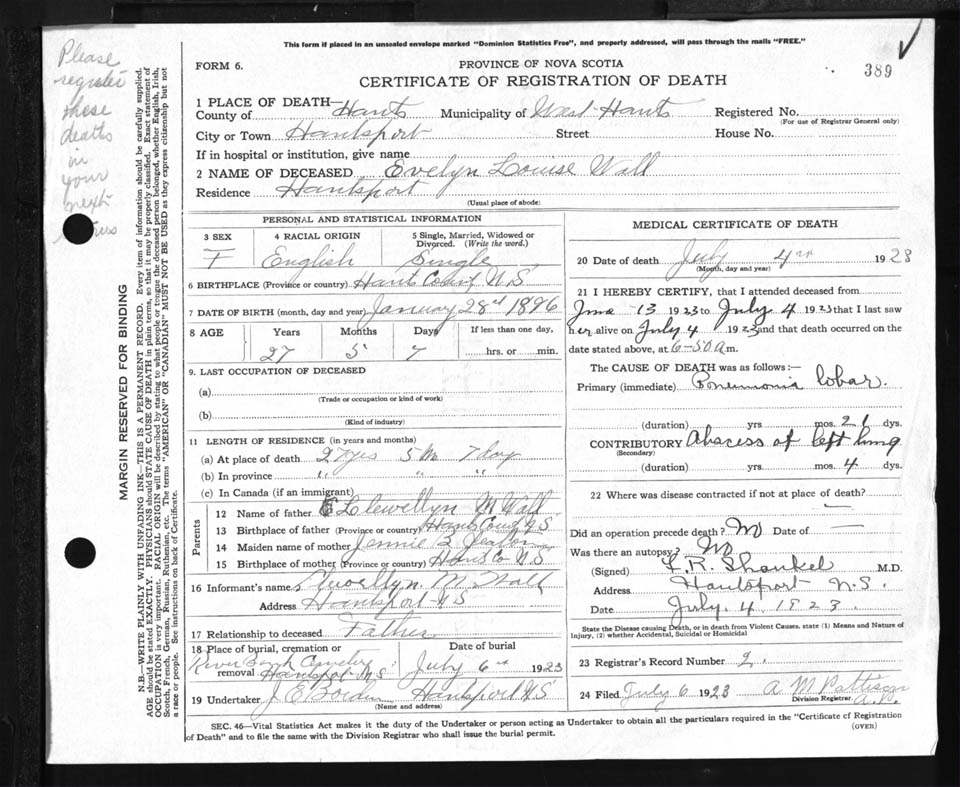 This form if placed in an unsealed envelope marked "Dominion Statistics Free", and properly addressed, will pass through the mails "FREE."
FORM 6.
PROVINCE OF NOVA SCOTIA
389
CERTIFICATE OF REGISTRATION OF DEATH
Please
register
these
deaths
in
your
next
MARGIN RESERVED FOR BINDING
N.B.—WRITE PLAINLY WITH UNFADING INK—THIS IS A PERMANENT RECORD. Every item of information should be carefully supplied.
AGE should be stated EXACTLY. PHYSICIANS should STATE CAUSE OF DEATH in plain terms, so that it may be properly classified. Exact statement of
OCCUPATION is very important. RACIAL ORIGIN will be described by stating to what people or tongue the deceased person belonged, whether English, Irish,
Scotch, French, German, Russian, Ruthenian, etc. The terms "AMERICAN" OR "CANADIAN" MUST NOT BE USED as they express citizenship but not
a race or people. See instructions on back of Certificate.
1 PLACE OF DEATH—
County of Hants Municipality of West Hants Registered No.
(For use of Registrar General only)
City or Town Hantsport Street House No.
If in hospital or institution, give name
2 NAME OF DECEASED Evelyn Louise Wall
Residence Hantsport
(Usual place of abode)
PERSONAL AND STATISTICAL INFORMATION
3 SEX 4 RACIAL ORIGIN 5 Single, Married, Widowed or
Divorced. (Write the word.)
F English Single
6 BIRTHPLACE (Province or country) Hants County N S
7 DATE OF BIRTH (month, day and year) January 28th 1896
8 AGE Years Months Days If less than one day,
27 5 7 hrs. or min.
9. LAST OCCUPATION OF DECEASED
(a)
(Trade or occupation or kind of work)
(b)
(Kind of industry)
11 LENGTH OF RESIDENCE (in years and months)
(a) At place of death 27 yrs 5 Mo 7 day
(b) In province " " "
(c) In Canada (if an immigrant)
Parents
12 Name of father Llewellyn M Wall
13 Birthplace of father (Province or country) Hants County N S
14 Maiden name of mother Jennie
15 Birthplace of mother (Province or country) Hants Co N S
16 Informant's name Llewellyn M Wall
Address Hantsport N S
17 Relationship to deceased Father
18 Place of burial, cremation or
removal Date of burial
River Bank Cemetery
Hantsport N S July 6th 1923
19 Undertaker J E Borden Hantsport N S
(Name and address)
MEDICAL CERTIFICATE OF DEATH
20 Date of death July 4th 1923
(Month, day and year)
21 I HEREBY CERTIFY, that I attended deceased from
June 13 1923 to July 4 1923 that I last saw
her alive on July 4 1923 and that death occurred on
date stated above, at 6-50 a m.
The CAUSE OF DEATH was as follows:—
Primary (immediate) Pneumonia lobar.
(duration) yrs mos. 21 dys.
CONTRIBUTORY Abscess of left lung
(Secondary)
(duration) yrs mos. 4 dys.
22 Where was disease contracted if not at place of death?
—
Did an operation precede death? No Date of —
Was there an autopsy? No
(Signed) F. R. Shankel M.D.
Address Hantsport N.S.
Date July. 4. 1923.
State the Disease causing Death, or in death from Violent Causes, state (1) Means and Nature of
Injury, (2) whether Accidental, Suicidal or Homicidal
23 Registrar's Record Number 2.
24 Filed July 6 1923 A M Pattison
Division Registrar
SEC. 46—Vital Statistics Act makes it the duty of the Undertaker or person acting as Undertaker to obtain all the particulars required in the "Certificate of Registration
of Death" and to file the same with the Division Registrar who shall issue the burial permit.
(OVER)